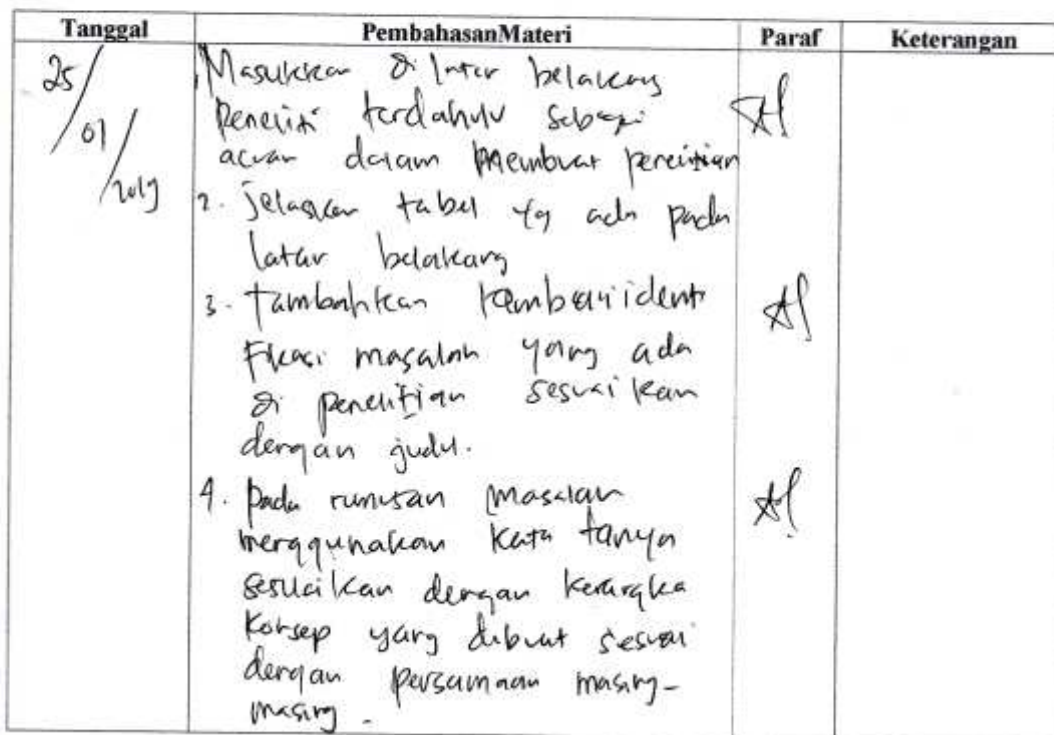 Tanggal PembahasanMateri Paraf Keterangan
25/01/2019
1. Masukkan di latar belakang
peneliti terdahulu sebagai
acuan dalam membuat penelitian
2. jelaskan tabel yg ada pada
latar belakang
3. Tambahkan kembali identi
fikasi masalah yang ada
di penelitian sesuaikan
dengan judul.
4. pada rumusan masalah
menggunakan kata tanya
sesuaikan dengan kerangka
konsep yang dibuat sesuai
dengan persamaan masing-
masing.